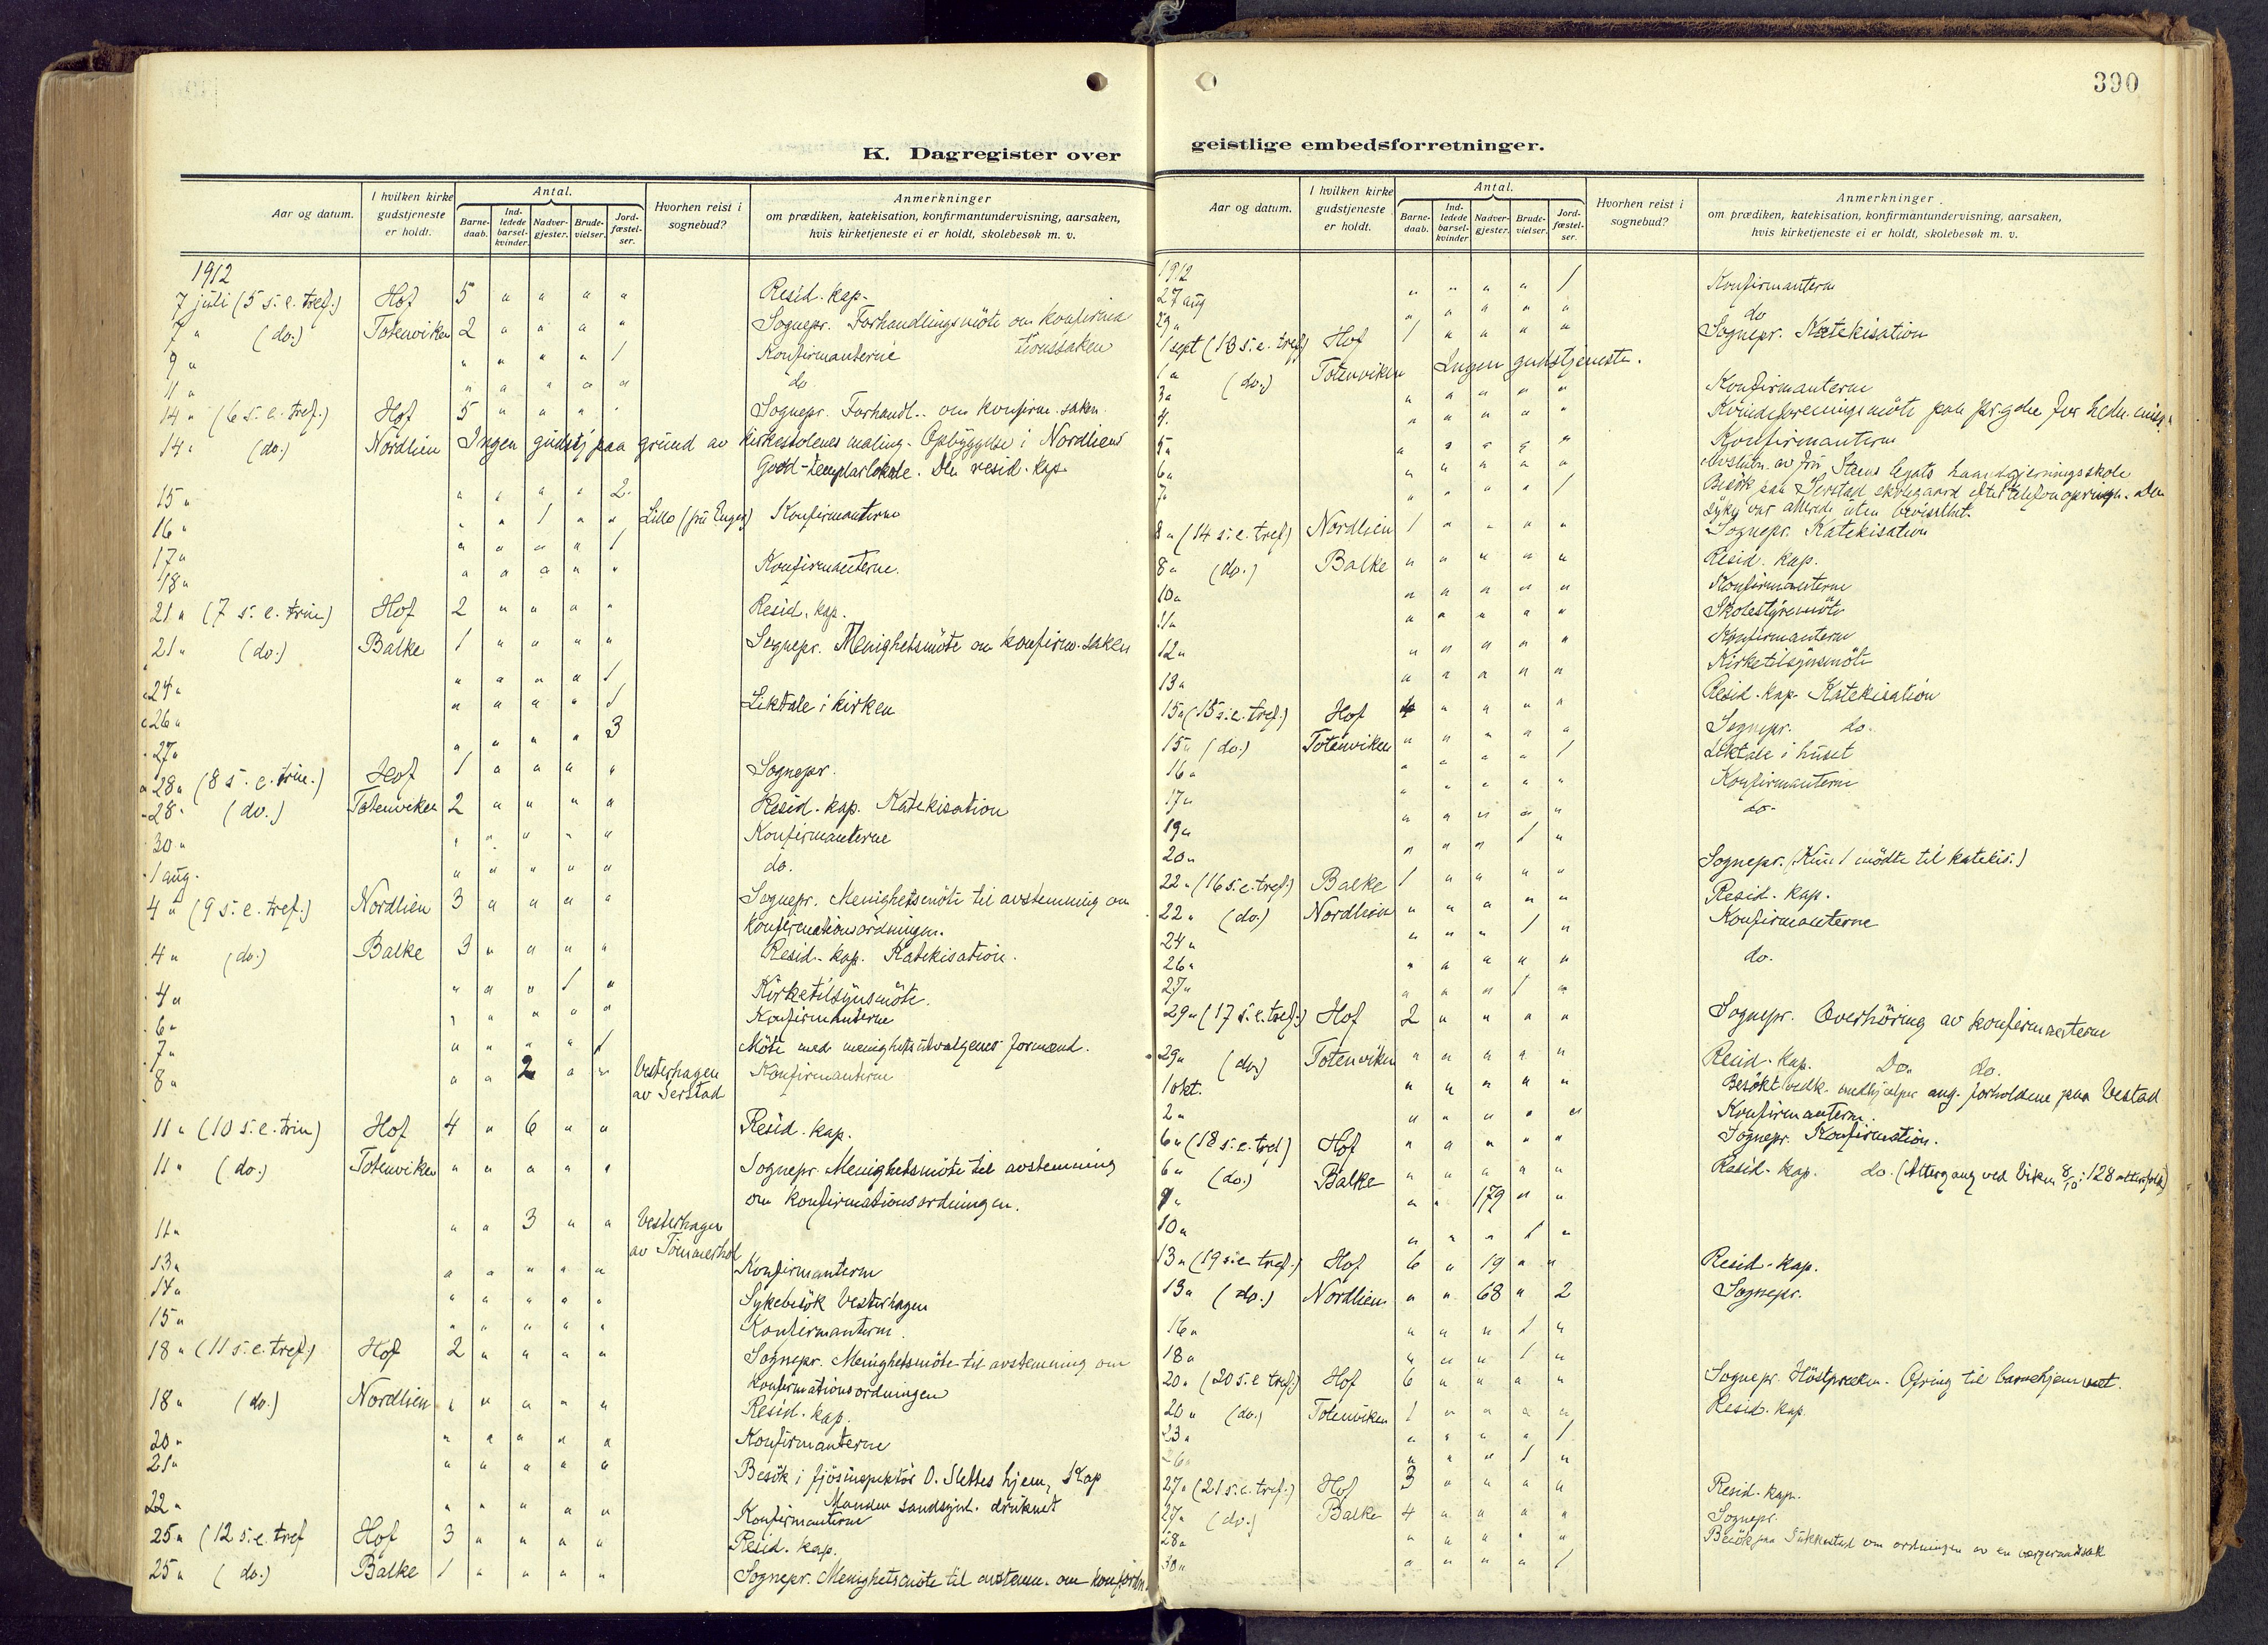 390
K. Dagregister over
Aar og datum.
I hvilken kirke gudstjeneste er holdt.
Antal.
Barne-daab.
Ind-ledede barsel-kvinder.
Nadver-gjester.
Brude-vielser.
Jord-fæstel-ser.
Hvorhen reist i sognebud?
Anmerkninger
om prædiken, katekisation, konfirmantundervisning, aarsaken,
hvis kirketjeneste ei er holdt, skolebesøk m. v.
1912
7 juli (5 s. e. tref.) Hof 5 " " " " Resid. kap.
7 " (do.) Totenviken 2 " " " " Sognepr. Forhandlingsmöte om konfirma
tionssaken
9 " " " " " 1 Konfirmanterne
11 " " " " " " do
14 " (6 s. e. tref.) Hof 5 " " " " Sognepr. Forhandl. om konfirm. saken.
14 " (do.) Nordlien Ingen gudstj paa grund av kirkestolenes maling. Opbyggelse i Nordliens
Good-templarlokale. Den resid. kap.
15 " " " " " 2
16 " " " 1 " " Lillo (fru Enger) Konfirmanterne
17 " " " " " 1
18 " " " " " " Konfirmanterne.
21 " (7 s. e. trin) Hof 2 " " " " Resid. kap.
21 " (do.) Balke 1 " " " " Sognepr. Menighetsmöte om konfirm. saken
24 " " " " " 1
26 " " " " " 1 Liktale i kirken
27 " " " " " 3
28 " (8 s. e. trin.) Hof 1 " " " " Sognepr.
28 " (do.) Totenviken 2 " " " " Resid. kap. Katekisation
30 " " " " " " Konfirmanterne
1 aug. " " " " " do.
4 " (9 s. e. tref.) Nordlien 3 " " " " Sognepr. Menighetsmöte til avstemning om
konfirmationsordningen.
4 " (do.) Balke 3 " " " " Resid. kap. Katekisation.
4 " " " " 1 " Kirketilsynsmöte.
6 " " " " " " Konfirmanterne
7 " " " " " 1 Möte med menighetsutvalgenes formænd.
8 " " " 2 " " Vesterhagen
av Serstad Konfirmanterne
11 " (10 s. e. trin) Hof 4 " 6 " " Resid. kap.
11 " (do.) Totenviken " " " " " Sognepr. Menighetsmöte til avstemning
om konfirmationsordningen.
11 " " " 3 " " Vesterhagen
av Tömmerhol
13 " " " " " " Konfirmanterne
14 " " " " " " Sykebesök Vesterhagen
15 " " " " " " Konfirmanterne.
18 " (11 s. e. tref.) Hof 2 " " " " Sognepr. Menighetsmöte til avstemning om
konfirmationsordningen
18 " (do.) Nordlien " " " " " Resid. kap.
20 " " " " " " Konfirmanterne
21 " " " " " " Besök i fjösinspektör O. Slettes hjem, Kap
Manden sandsynl. druknet
22 " " " " " " Konfirmanterne
25 " (12 s. e. tref Hof 3 " " " " Resid. kap.
25 " (do.) Balke 1 " " " " Sognepr. Menighetsmöte til avstemn. om konf.ordn.
geistlige embedsforretninger.
Aar og datum.
I hvilken kirke gudstjeneste er holdt.
Antal.
Barne-daab.
Ind-ledede barsel-kvinder
Nadver-gjester.
Brude-vielser.
Jord-fæstel-ser.
Hvorhen reist i sognebud?
Anmerkninger
om prædiken, katekisation, konfirmantundervisning, aarsaken,
hvis kirketjeneste ei er holdt, skolebesøk m. v.
1912
27 aug " " " " 1 Konfirmanterne
29 " " " " " " do
1 sept (13 s. e. tref) Hof 1 " " " " Sognepr. Katekisation
1 " (do.) Totenviken Ingen gudstjeneste.
3 " " " " " " Konfirmanterne
4. " " " " " Kvindeforeningsmöte paa pr.gde for hedn. miss.
5 " " " " " " Konfirmanterne
6 " " " " " " Avslutn. av fru Steens legats haandgjerningsskole
7 " " " " " 1 Besök paa Serstad efter telefonopringn. Den
syke var allerede uten bevissthet.
8 " (14 s. e. tref) Nordlien 1 " " " " Sognepr. Katekisation
8 " (do.) Balke " " " " " Resid. kap.
10 " " " " " " Konfirmanterne
11 " " " " " " Skolestyremöte
12 " " " " " " Konfirmanterne
13 " " " " " " Kirketilsynsmöte
15 " (15 s. e. tref.) Hof " " " " Resid. kap. Katekisation
15 " (do.) Totenviken " " " " " Sognepr. do.
16 " " " " " 1 Liktale i huset
17 " " " " " " Konfirmanterne
19 " " " " " " do.
20 " " " " 1 "
22 " (16 s. e. tref.) Balke 1 " " " " Sognepr. (Kun 1 mödte til katekis.)
22 " (do.) Nordlien " " " " " Resid. kap.
24 " " " " 1 " Konfirmanterne
26 " " " " " " do.
27 " " " " 1 "
29 " (17 s. e. tref.) Hof 2 " " " " Sognepr. Overhöring av konfirmanterne
29 " (do.) Totenviken " " " " " Resid. kap. Do. do.
1 okt. " " " " " Besökt vedk. medhjælper ang. forholdene paa Vestad
2 " " " " " " Konfirmanterne.
6 " (18 s. e. tref) Hof " " " " " Sognepr. Konfirmation.
6 " (do.) Balke " " " " " Resid. kap. do. (Altergang ved Viken 8/10: 128 altergj.)
9 " " " 179 " "
10 " " " " 1 "
13 " (19 s. e. tref.) Hof 6 " 19 " " Resid. kap.
13 " (do.) Nordlien " " 68 " 2 Sognepr.
16 " " " " 1 "
18 " " " " 1 "
20 " (20 s. e tref.) Hof 6 " " " " Sognepr. Höstpræken. Ofring til barnehjemmet.
20 " (do.) Totenviken 1 " " " " Resid. kap.
23 " " " " " 1
26 " " " " 1 "
27 " (21 s. e. tref.) Hof 3 " " " " Resid. kap.
27 " (do.) Balke 4 " " " " Sognepr.
28 " " " " " " Besök paa om ordningen av en værgeraadssak
30 " " " " " 1